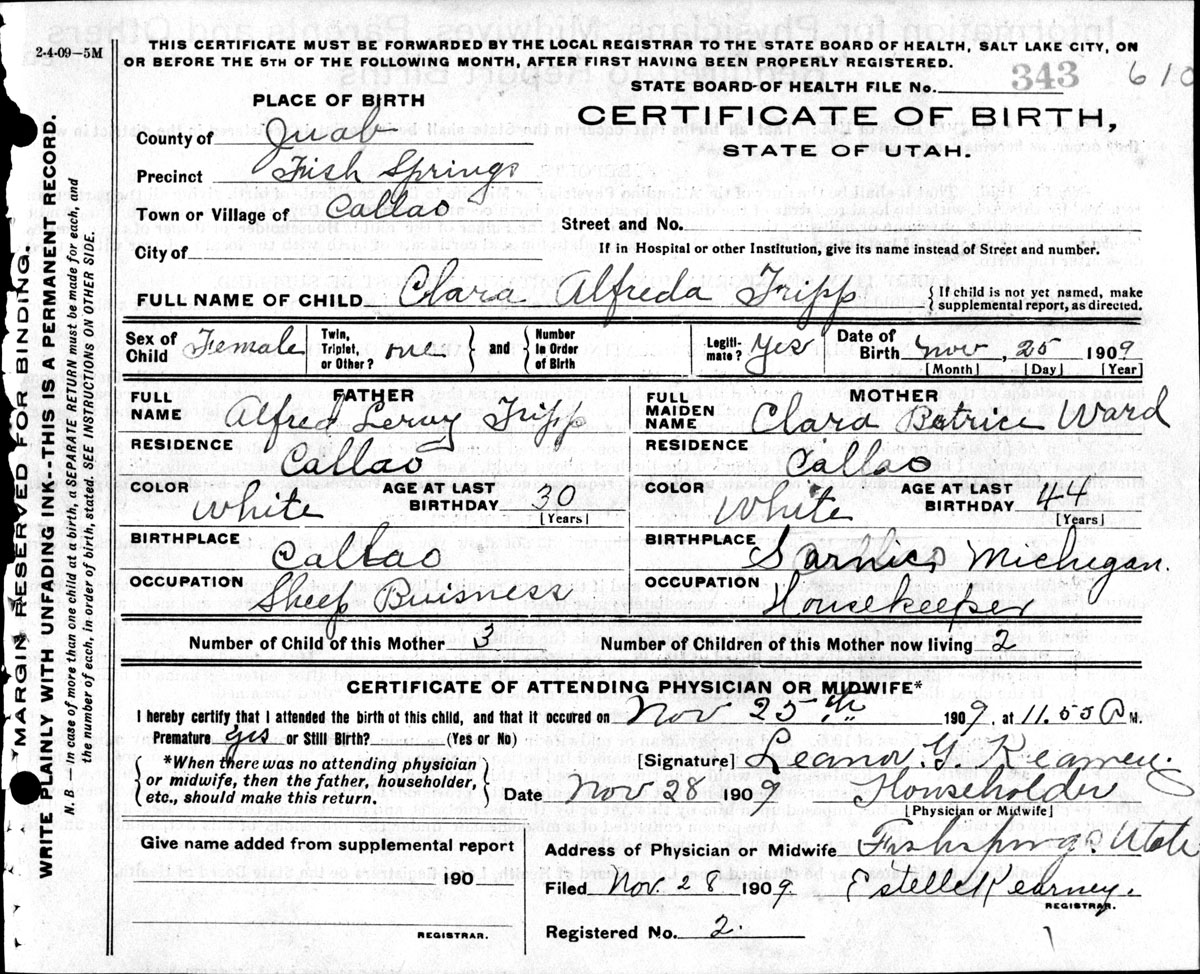 2-4-09-5M
THIS CERTIFICATE MUST BE FORWARDED BY THE LOCAL REGISTRAR TO THE STATE BOARD OF HEALTH, SALT LAKE CITY, ON
OR BEFORE THE 5TH OF THE FOLLOWING MONTH, AFTER FIRST HAVING BEEN PROPERLY REGISTERED.
STATE BOARD OF HEALTH FILE No. 343 610
PLACE OF BIRTH
CERTIFICATE OF BIRTH,
STATE OF UTAH.
County of Juab
Precinct Fish Springs
Town or Village of Callao
Street and No.
City of
If in Hospital or other Institution, give its name instead of Street and number.
FULL NAME OF CHILD Clara Alfreda Tripp {If child is not yet named, make supplemental report, as directed.
Sex of Child Female Twin, Triplet, or Other? one } and { Number in Order of Birth Legiti-mate? Yes Date of Birth Nov, 25 1909
[Month] [Day] [Year]
FATHER
FULL NAME Alfred Leroy Tripp
RESIDENCE
Callao
COLOR White AGE AT LAST BIRTHDAY 30
[Years]
BIRTHPLACE
Callao
OCCUPATION
Sheep Buisness
MOTHER
FULL MAIDEN NAME Clara Betrice Ward
RESIDENCE
Callao
COLOR White AGE AT LAST BIRTHDAY 44
[Years]
BIRTHPLACE
Michegan.
OCCUPATION
Housekeeper
Number of Child of this Mother 3 Number of Children of this Mother now living 2
CERTIFICATE OF ATTENDING PHYSICIAN OR MIDWIFE*
I hereby certify that I attended the birth of this child, and that it occured on Nov 25th 1909, at 11.55 P M.
Premature yis or Still Birth? (Yes or No)
{*When there was no attending physician
or midwife, then the father, householder,
etc., should make this return.}
[Signature] Leana Y. Kearney
Date Nov 28 1909 Householder
[Physician or Midwife]
Give name added from supplemental report
190
REGISTRAR.
Address of Physician or Midwife Fishsprings Utah
Filed Nov. 28 1909. Estelle Kearney.
REGISTRAR.
Registered No. 2.
MARGIN RESERVED FOR BINDING.
WRITE PLAINLY WITH UNFADING INK--THIS IS A PERMANENT RECORD.
N. B. — In case of more than one child at a birth, a SEPARATE RETURN must be made for each, and
the number of each, in order of birth, stated. SEE INSTRUCTIONS ON OTHER SIDE.